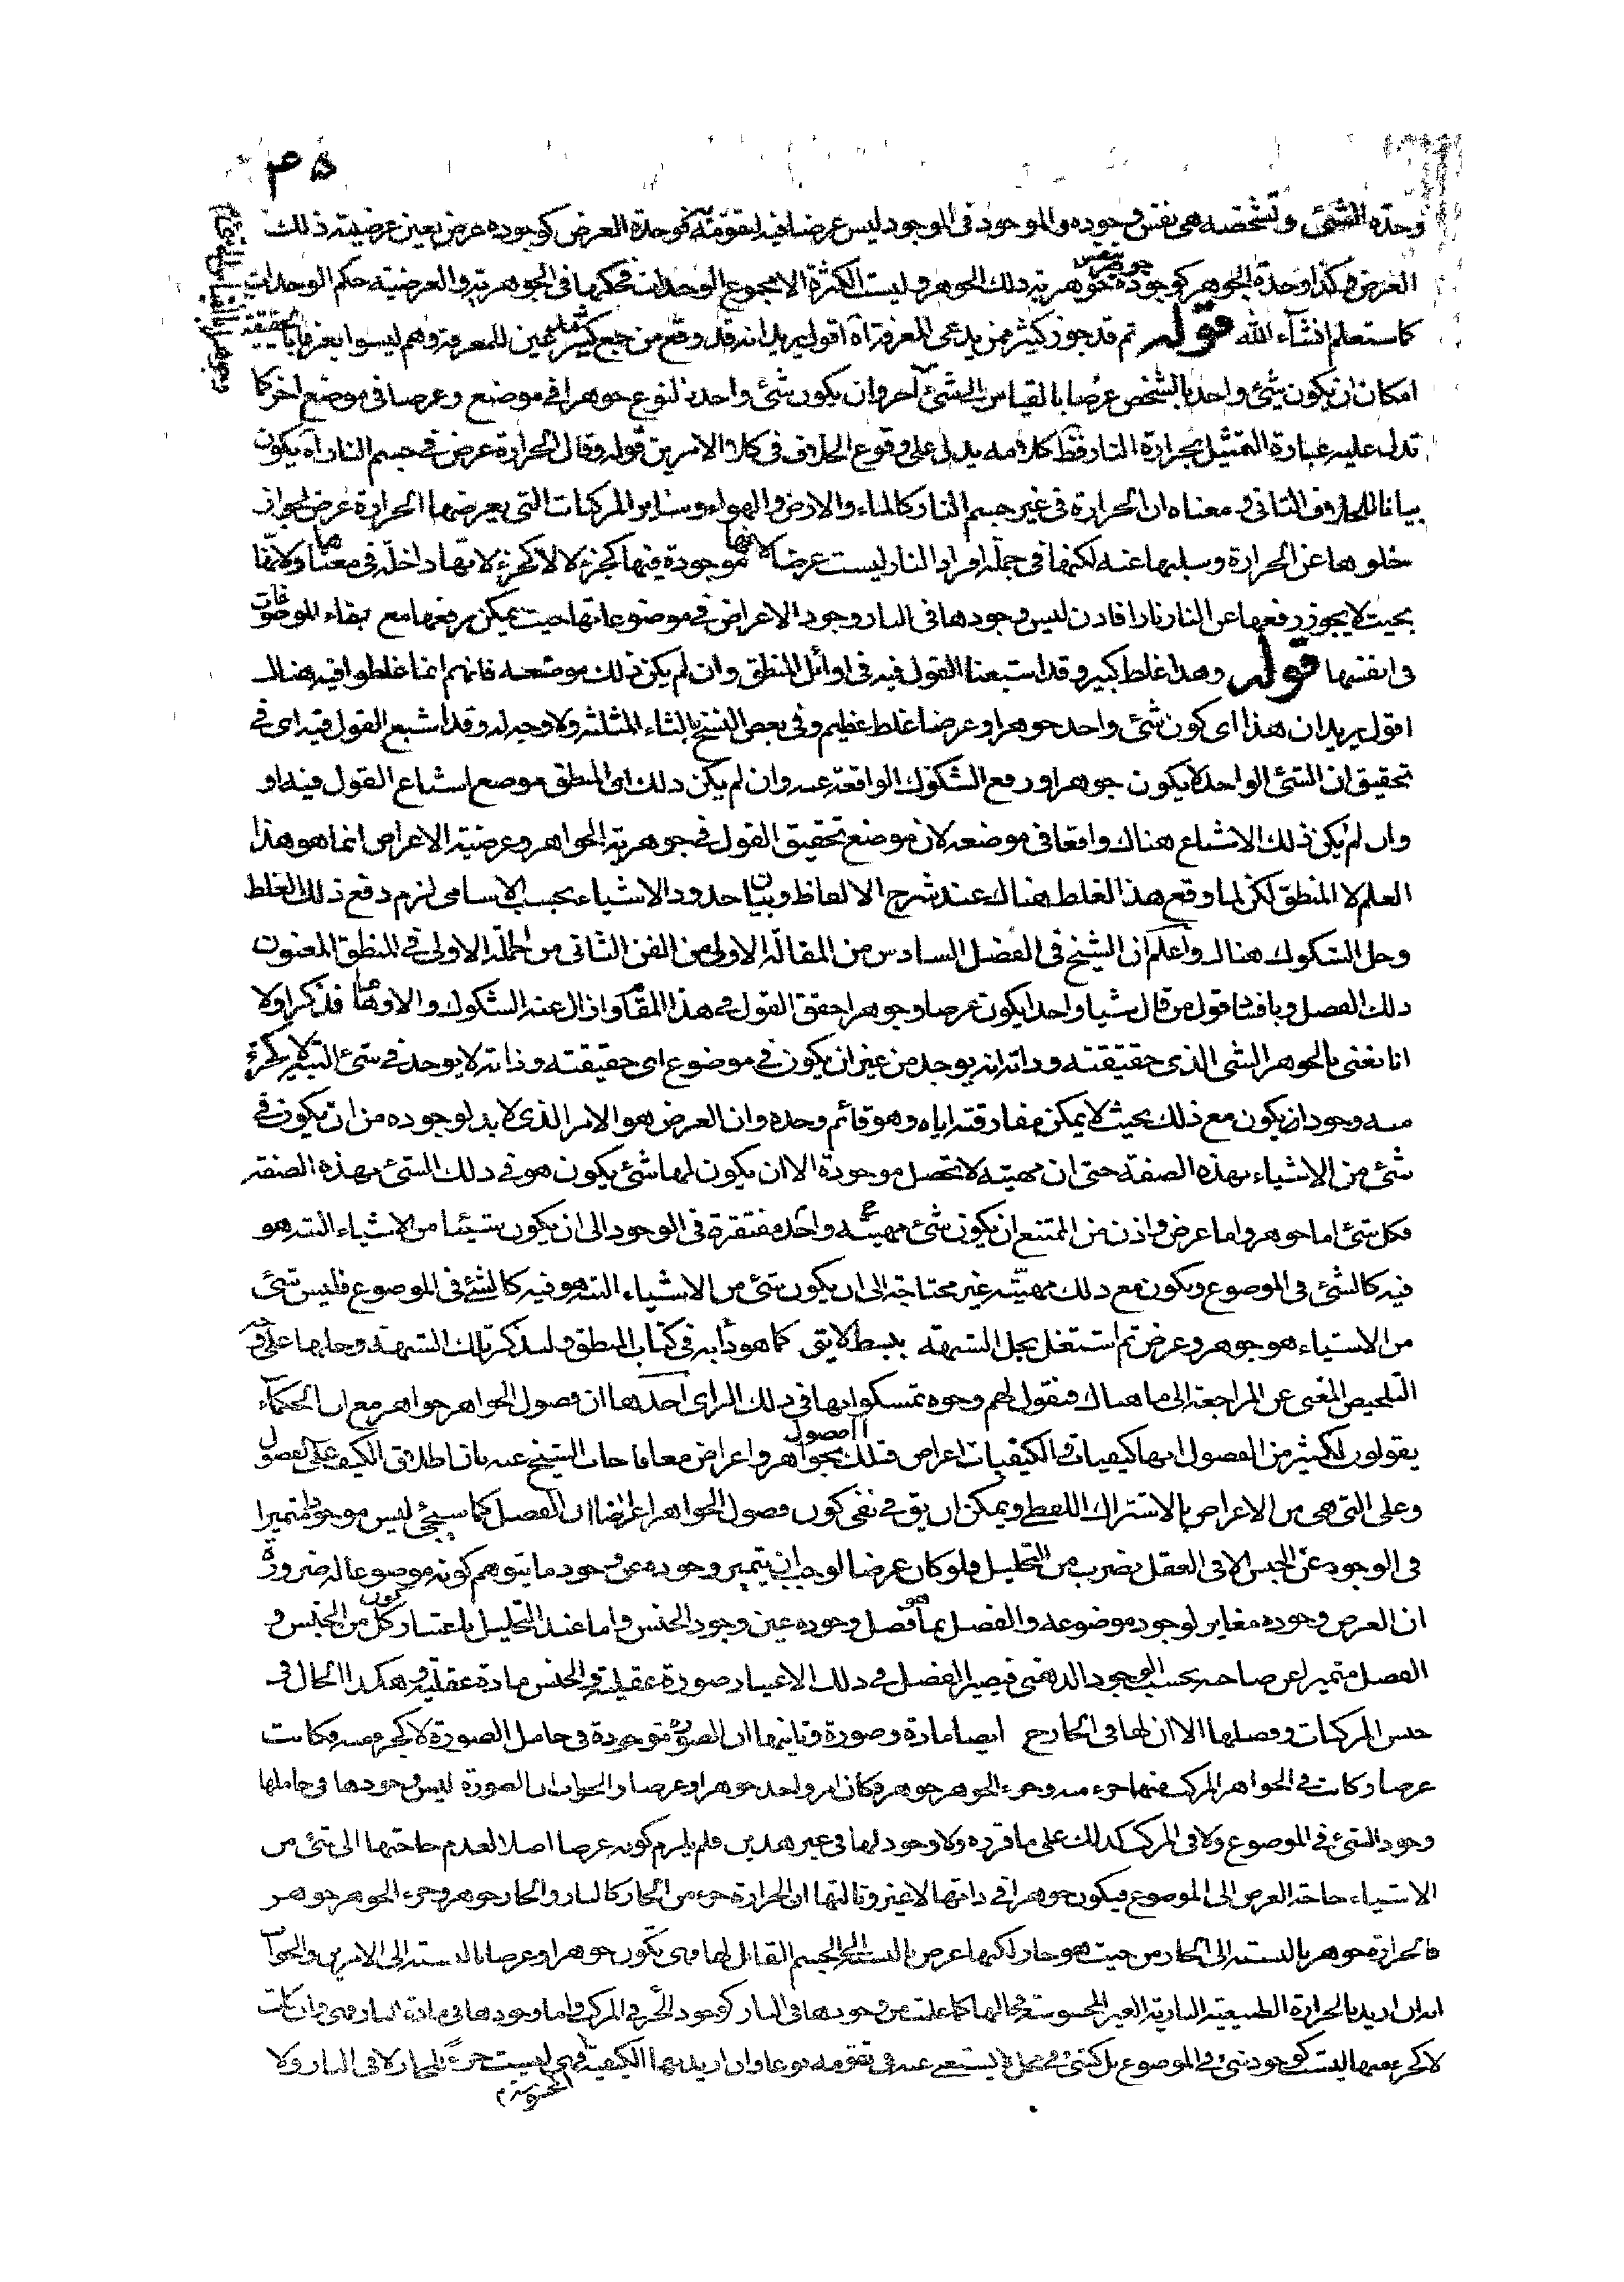 ٣٥
وحدة الشئ وتشخصه هى نفس وجوده والموجود فى الموجود ليس عرضا فيه لتقومه فوحدة العرض كوجوده عرض بعين عرضيته ذلك
العرض وهكذا وحدة الجوهر كوجوده جوهر بنفس جوهرية ذلك الجوهر وليست الكثرة الا مجموع الوحدات فحكمها فى الجوهرية والعرضية حكم الوحدات
كما ستعلم انشاء الله قوله ثم قد جوز كثير ممن يدعى المعرفة آه اقول يريد انه قد وقع من جمع كثير مدعين للمعرفة وهم ليسوا بعرفاء بالحقيقة
امكان ان يكون شئ واحد بالشخص عرضا بالقياس الى شئ آخر وان يكون شئ واحد بالنوع جوهرا فى موضع وعرضا فى موضع اخر كما
تدل عليه عبارة التمثيل بحرارة النار فظ كلامه يدل على وقوع الخلاف فى كلا الامرين قوله وقال الحرارة عرض فى جسم النار آه يكون
بيانا للخلاف الثانى ومعناه ان الحرارة فى غير جسم النار كالماء والارض والهواء وساير المركبات التى يعرضها الحرارة عرض لجواز
خلوها عن الحرارة وسلبها عنه لكنها فى جملة افراد النار ليست عرضا لانها موجودة فيها كجزء لا لا كجزء لانها داخلة فى معناها ولانها
بحيث لا يجوز رفعها عن النار نارا فاذن ليس وجودها فى النار وجود الاعراض فى موضوعاتها حيث يمكن رفعها مع بقاء الموضوعات
فى انفسها قوله وهذا غلط كبير وقد اشبعنا القول فيه فى اوائل المنطق وان لم يكن ذلك موضعه فانهم انما غلطوا فيه هناك
اقول يريد ان هذا اى كون شئ واحد جوهرا وعرضا غلط عظيم وفى بعض النسخ بالثاء المثلثة ولا وجه له وقد اشبع القول فيه اى فى
تحقيق ان الشئ الواحد لا يكون جوهرا ورفع الشكوك الواقعة عنه وان لم يكن ذلك اى المنطق موضع اشباع القول فيه او
وان لم يكن ذلك الاشباع هناك واقعا فى موضعه لان موضع تحقيق القول فى جوهرية الجواهر وعرضية الاعراض انما هو هذا
العلم لا المنطق لكن لما وقع هذا الغلط هناك عند شرح الالفاظ وبيان حدود الاشياء بحسب الاسامى لزم دفع ذلك الغلط
وحل الشكوك هناك واعلم ان الشيخ فى الفصل السادس من المقالة الاولى من الفن الثانى من الجملة الاولى فى المنطق المعنون
ذلك الفصل بافساد قول من قال شيئا واحدا يكون عرضا وجوهرا حقق القول فى هذا المقام وازال عنه الشكوك والاوهام فذكر اولا
انا نعنى بالجوهر الشئ الذى حقيقته وذاته انه يوجد من غير ان يكون فى موضوع اى حقيقته وذاته لا يوجد فى شئ البتة لا كجزء
منه وجود ان يكون مع ذلك بحيث لا يمكن مفارقته اياه وهو قائم وحده وان العرض هو الامر الذى لا بد لوجوده من ان يكون فى
شئ من الاشياء بهذه الصفة حتى ان مهيته لا تحصل موجودة الا ان يكون لها شئ يكون هو فى ذلك الشئ بهذه الصفة
فكل شئ اما جوهر واما عرض واذن من الممتنع ان يكون شئ مهيته واحدة مفتقرة فى الوجود الى ان يكون شيئا من الاشياء البتة هو
فيه كالشئ فى الموضوع ويكون مع ذلك مهيته غير محتاجة الى ان يكون شئ من الاشياء البتة هو فيه كالشئ فى الموضوع فليس شئ
من الاشياء هو جوهر وعرض ثم اشتغل بحل الشبهة ببسط لايق كما هو دأبه فى كتاب المنطق ولنذكر تلك الشبهة وحلها على وجه
التلخيص المغنى عن المراجعة الى ما هناك فنقول لهم وجوه تمسكوا بها فى ذلك الراى احدها ان فصول الجواهر جواهر مع ان الحكماء
يقولون لكثير من الفصول انها كيفيات والكيفيات اعراض فتلك الفصول جواهر واعراض معا فاجاب الشيخ عنه بان اطلاق الكيف على الفصول
وعلى التى هى من الاعراض بالاشتراك اللفظى ويمكن ان يق فى نفى كون فصول الجواهر اعراضا ان الفصل كما سيجئ ليس موجودا متميزا
فى الوجود عن الجنس الا فى العقل بضرب من التحليل ولو كان عرضا لوجب ان يتميز وجوده عن وجود ما يتوهم كونه موضوعا له ضرورة
ان العرض وجوده مغاير لوجود موضوعه والفصل بما هو فصل وجوده عين وجود الجنس واما عند التحليل باعتبار كون كل من الجنس و
الفصل متميزا عن صاحبه بحسب الوجود الذهنى فيصير الفصل فى ذلك الاعتبار صورة عقلية والجنس مادة عقلية وهكذا الحال فى
جنس المركبات وفصلها الا ان لها فى الخارج ايضا مادة وصورة وثانيها ان الصورة موجودة فى حامل الصورة لا كجزء منه فكانت
عرضا وكانت فى الجواهر المركب منها جزء منه وجزء الجوهر جوهر فكان امر واحد جوهرا وعرضا والجواب ان الصورة ليس وجودها فى حاملها
وجود الشئ فى الموضوع ولا فى المركب كذلك على ما قرره ولا وجود لها فى غير هذين فلم يلزم كونه عرضا اصلا لعدم حاجتها الى شئ من
الاشياء حاجة العرض الى الموضوع فيكون جوهرا فى ذاتها لا غير وثالثها ان الحرارة جزء من الحار كالنار والحار جوهر وجزء الجوهر جوهر
فالحرارة جوهر بالنسبة الى الحار من حيث هو حار لكنها عرض بالنسبة الى الجسم القابل لها فهى تكون جوهرا وعرضا بالنسبة الى الامرين والجواب
انه ان اريد بالحرارة الطبيعية النارية الغير المحسوسة فحالها كما علمت من وجودها فى النار كوجود الجزء فى المركب واما وجودها فى مادة النار فهى وان كانت
لا كجزء منها ليست كوجود شئ فى الموضوع بل كشئ فى محل لا يستغنى عنه فى تقومه نوعا وان اريد بها الكيفية المحسوسة فهى ليست جزءً للحار لا فى النار ولا